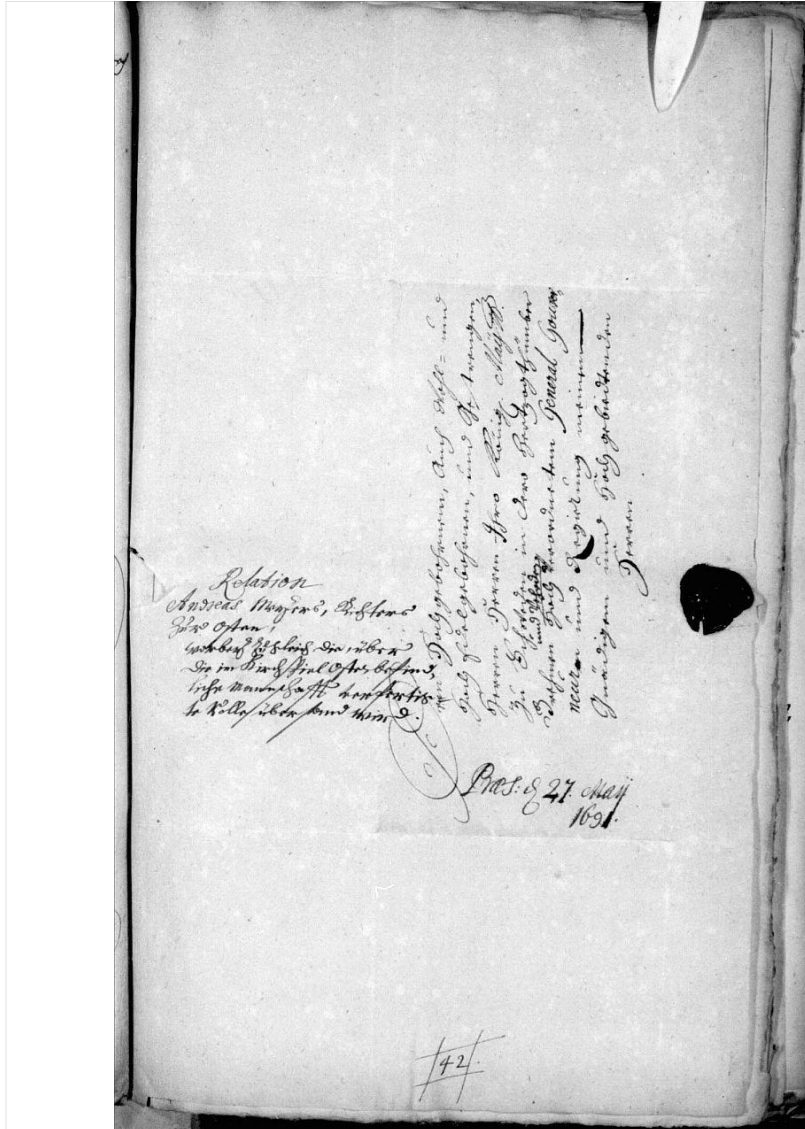 Relation
Andreas Meyers, Richters
Zur Osten,
worbey zugleich die über
die in Kirchspiel Osten befind,
liche Mannschafft verfertig,
te Rolle übersand wird.
Hochgebohrnem, Auch Wohl- und
Hoch Edelgebohrnen, und Gestrengen
Herren Herren Ihro König. Mayt.
Zu Schweden in dero Hertzogthümber
Brehmen und Vehrden Hochverordnetem General Gouver
neur und Regierung meinem
Gnädigem und Hochgebietenden
Herren
Præs: d 27. Maÿ
1691.
42.